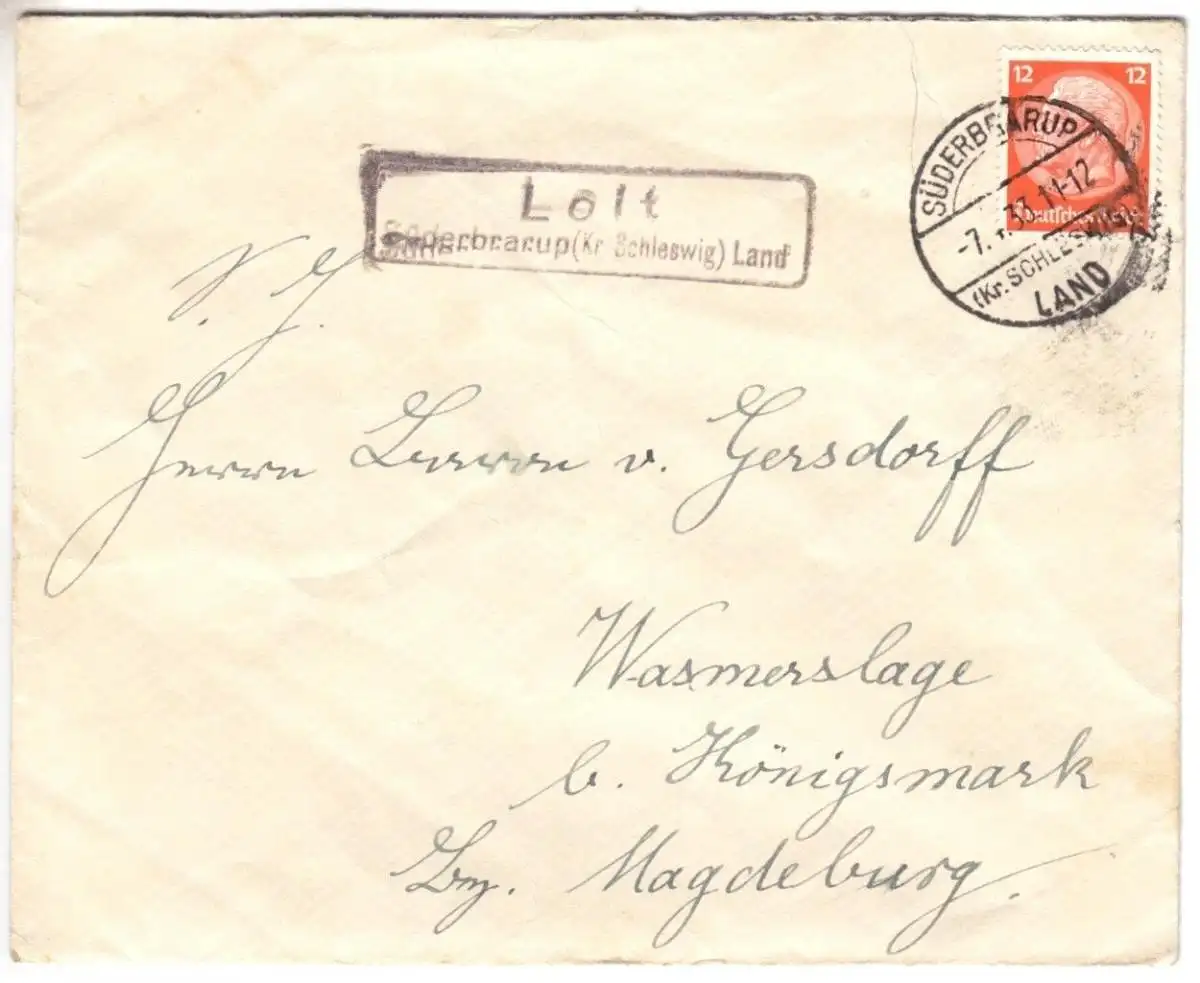 12 12
Deutsches Reich
SÜDERBRARUP
-7. 33.11-12
(Kr. SCHLESWIG)
LAND
Loit
Süderbrarup (Kr. Schleswig) Land
S. H.
Herrn Baron v. Gersdorff
Wasmerslage
b. Königsmark
Bz. Magdeburg.